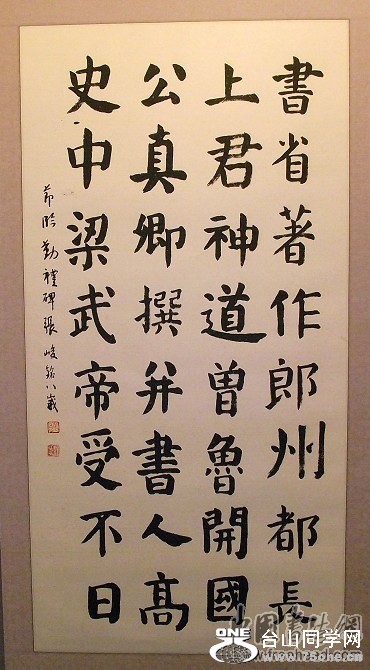 書省著作郎州都長
上君神道曾魯開國
公真卿撰并書人高
史中梁武帝受不日
節臨勤禮碑張峻銘八歲
中国书法网
ONE
台山同学网